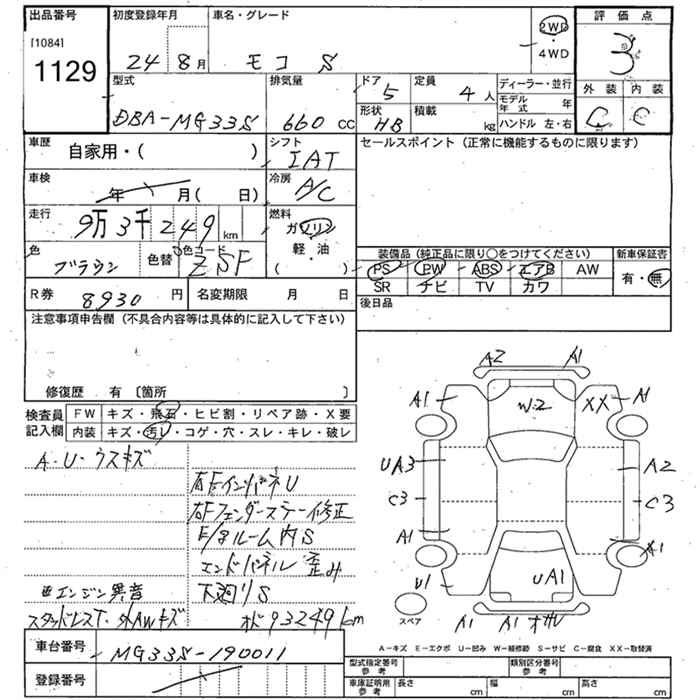 出品番号
[1084]
1129
初度登録年月
24 8月
車名・グレード
モコ S
2WD
・
4WD
評価点
3
外装 内装
C C
型式
DBA-MG33S
排気量
660 cc
ドア
5
定員
4人
形状
HB
積載
kg
ディーラー・並行
モデル年式 年
ハンドル 左・右
車歴
自家用・( )
シフト
IAT
セールスポイント(正常に機能するものに限ります)
車検
年 月( 日)
冷房
A/C
走行
9万3千249km
燃料
ガソリン
・
軽・油
( )
色
ブラウン
色替
色コード
ZSF
装備品(純正品に限り○をつけてください)
PS PW ABS エアB AW
SR ナビ TV カワ
新車保証書
有・無
R券 8930円
名変期限 月 日
後日品
注意事項申告欄(不具合内容等は具体的に記入して下さい)
修復歴 有〔箇所 〕
検査員記入欄
FW キズ・飛石・ヒビ割・リペア跡・X要
内装 キズ・汚レ・コゲ・穴・スレ・キレ・破レ
A・U・ウスキズ
右FインパネU
右Fフェンダーステー修正
F/タルーム内S
エンドパネル 歪み
エンジン異音
下廻りS
スタッドレスT・外AWキズ
オド93249km
A2 A1
A1 XX A1
W2
UA3 A2
C3 C3
A1 A1
U1 UA1
A1 A1 オサレ
スペア
A-キズ E-エクボ U-凹み W-補修跡 S-サビ C-腐食 XX-取替済
車台番号
MG33S-190011
登録番号
型式指定番号 参考
類別区分番号 参考
車庫証明用 参考
長さ cm
幅 cm
高さ cm